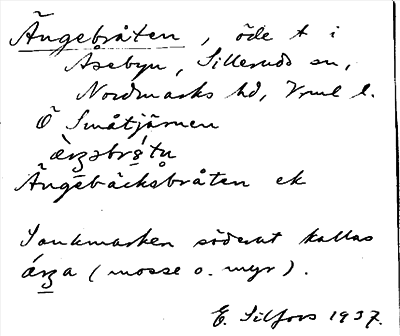 Ängebråten, öde t i
Åsebyn, Silleruds sn,
Nordmarks hd, Vrml l.
Ö Småtjärnen
Ängebäcksbråten ek
Sankmarken söderut kallas
(mosse o. myr).
E. Silfors 1937.